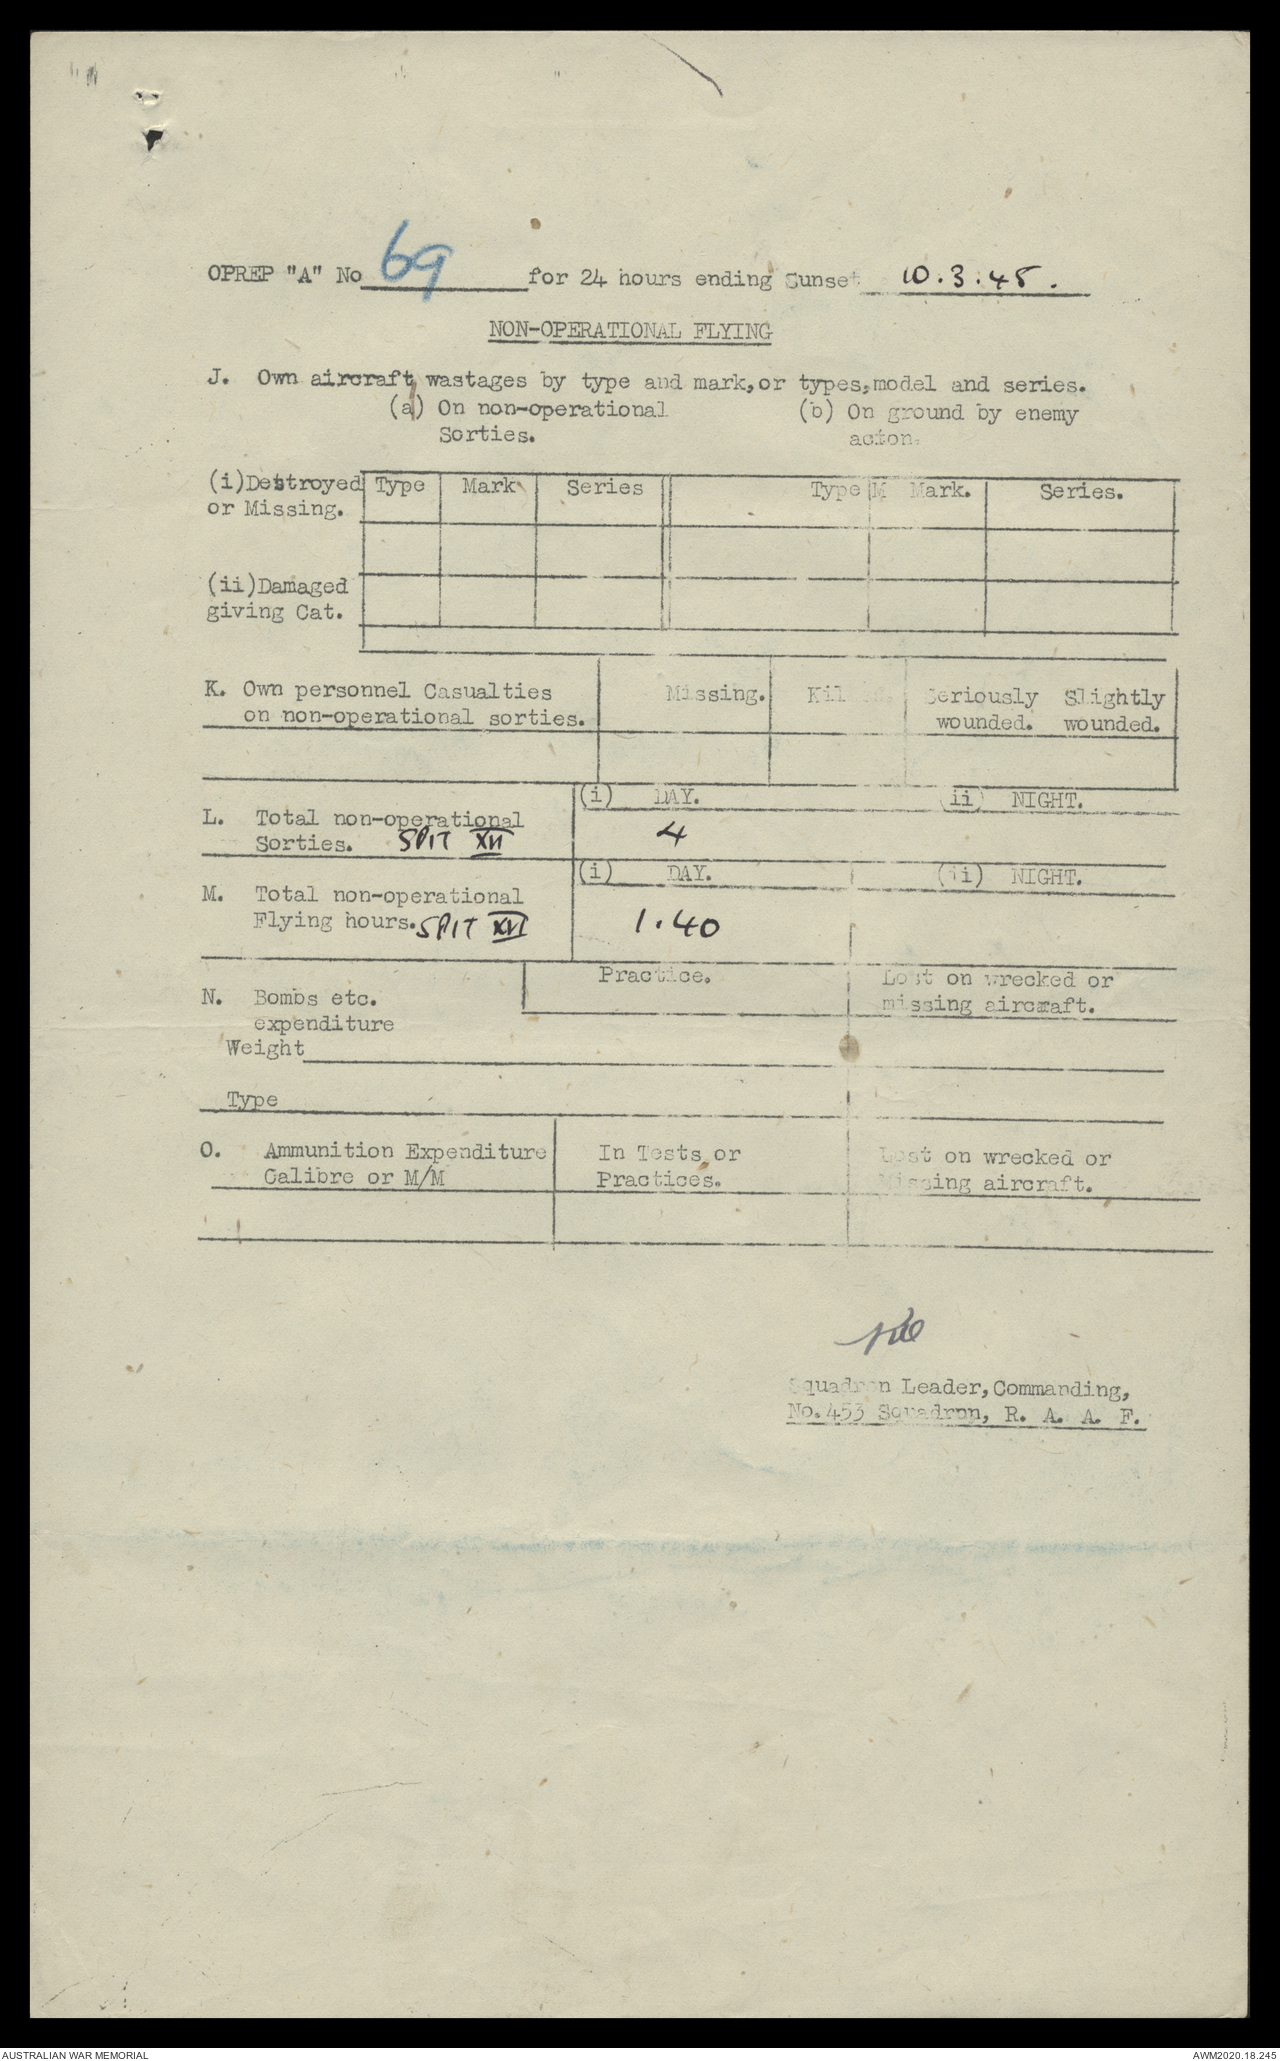 OPREP "A" No 69 for 24 hours ending Sunset 10.3.45.
NON-OPERATIONAL FLYING
J. Own aircraft wastages by type and mark, or types, model and series.
(a) On non-operational (b) On ground by enemy
Sorties. acton.
(i) Destroyed Type Mark Series Type M Mark. Series.
or Missing.
(ii) Damaged
giving Cat.
K. Own personnel Casualties Missing. Kil Seriously Slightly
on non-operational sorties. wounded. wounded.
(i) DAY. (ii) NIGHT.
L. Total non-operational
Sorties. SPIT XVI 4
(i) DAY. (ii) NIGHT.
M. Total non-operational
Flying hours. SPIT XVI 1.40
Practice. Lost on wrecked or
N. Bombs etc. missing aircraft.
expenditure
Weight
Type
O. Ammunition Expenditure In Tests or Lost on wrecked or
Calibre or M/M Practices. Missing aircraft.
Squadron Leader, Commanding,
No. 453 Squadron, R. A. A. F.
AUSTRALIAN WAR MEMORIAL AWM2020.18.245